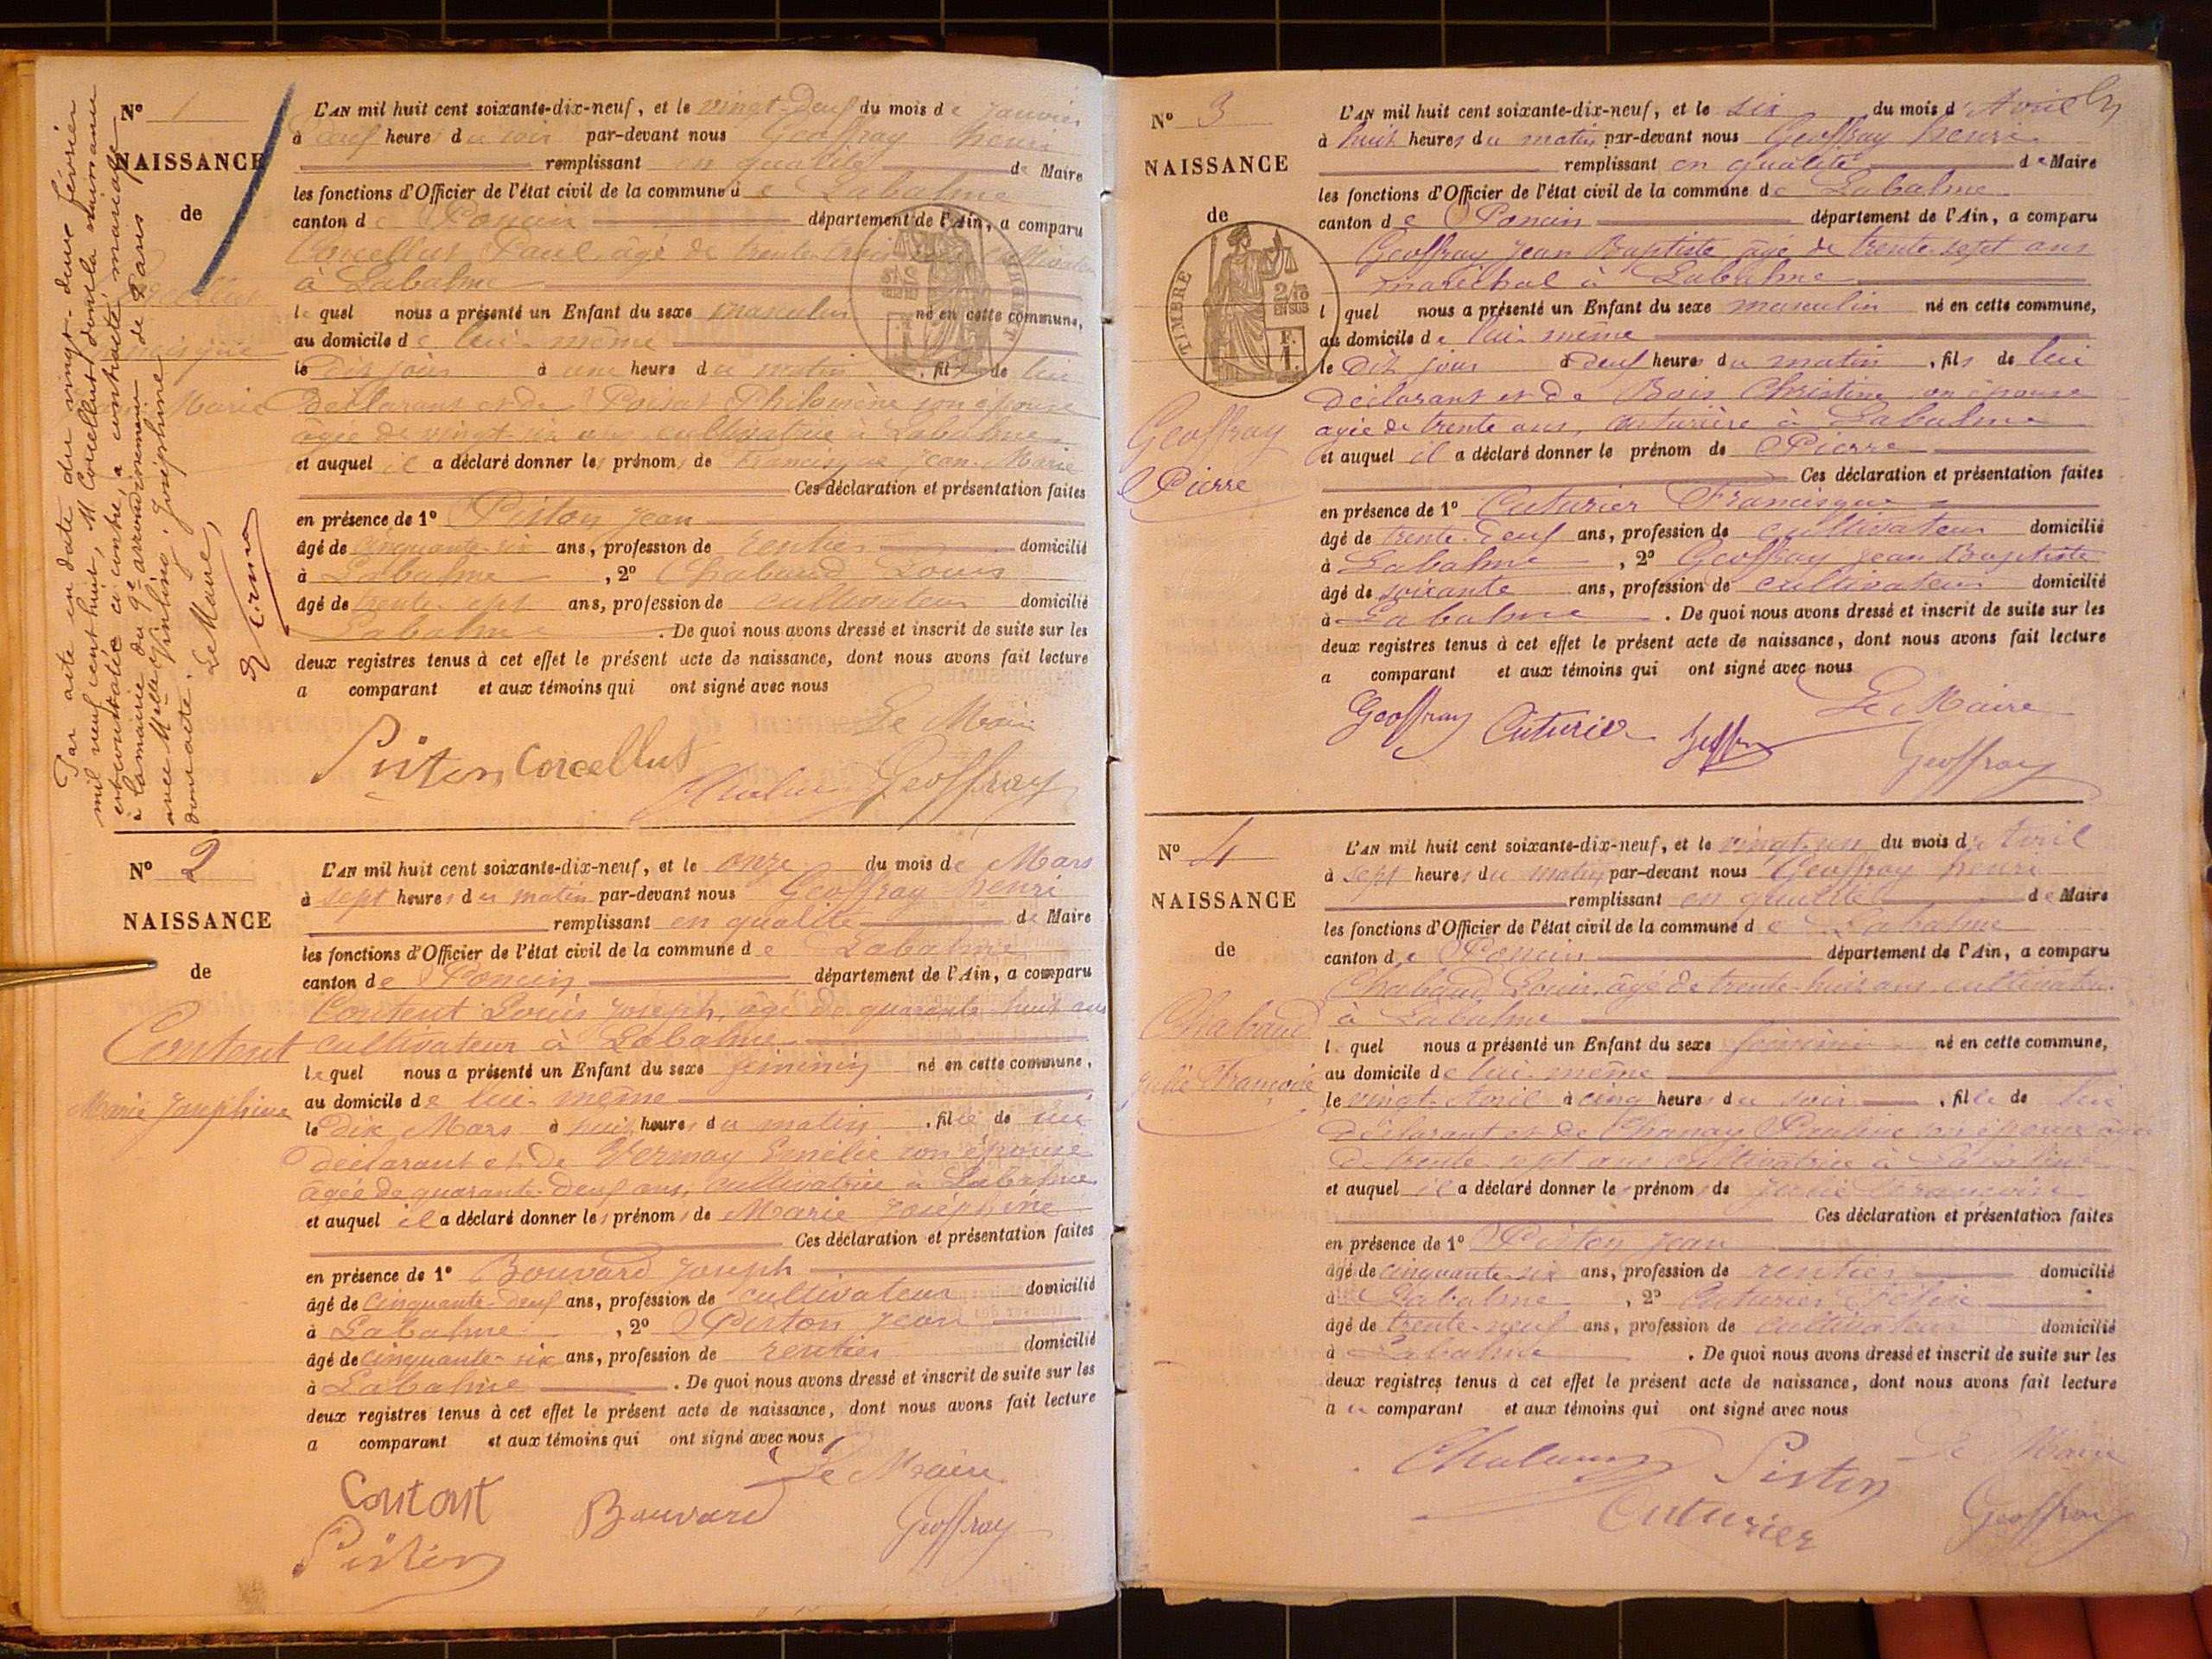 Par acte en date du vingt-deux février
mil neuf cent huit, M. Corcellut dont la naissance
est constatée ci-contre, a contracté mariage
à la mairie du 9e arrondissement de Paris
avec Melle Joséphine
dont acte.
Le Maire,
N° 1
NAISSANCE
de
Marie
L'AN mil huit cent soixante-dix-neuf, et le vingt-deux du mois de Janvier
à neuf heure du soir par-devant nous Geoffray henri
remplissant en qualité de Maire
les fonctions d'Officier de l'état civil de la commune de Labalme
canton de Poncin département de l'Ain, a comparu
Corcellut Paul, âgé de trente trois ans cultivateur
à Labalme
lequel nous a présenté un Enfant du sexe masculin né en cette commune,
au domicile de lui-même
le dit jour à une heure du matin, fils de lui
déclarant et de Poisat Philomène son épouse
âgée de vingt-six ans, cultivatrice à Labalme
et auquel il a déclaré donner les prénoms de Francisque Jean-Marie
Ces déclaration et présentation faites
en présence de 1° Piston Jean
âgé de cinquante-six ans, profession de rentier domicilié
à Labalme, 2° Chabaud Louis
âgé de trente-sept ans, profession de cultivateur domicilié
Labalme. De quoi nous avons dressé et inscrit de suite sur les
deux registres tenus à cet effet le présent acte de naissance, dont nous avons fait lecture
a comparant et aux témoins qui ont signé avec nous
Le Maire
Piston Corcellut
Geoffray
N° 2
NAISSANCE
de
Content
Marie Joséphine
L'AN mil huit cent soixante-dix-neuf, et le onze du mois de Mars
à sept heures du matin par-devant nous Geoffray henri
remplissant en qualité de Maire
les fonctions d'Officier de l'état civil de la commune de Labalme
canton de Poncin département de l'Ain, a comparu
Content Louis Joseph, âgé de quarante-huit ans
cultivateur à Labalme
lequel nous a présenté un Enfant du sexe féminin né en cette commune,
au domicile de lui-même
le dix Mars à huit heures du matin, fille de lui
déclarant et de Vernay Emélie son épouse
âgée de quarante-deux ans, cultivatrice à Labalme
et auquel il a déclaré donner les prénoms de Marie Joséphine
Ces déclaration et présentation faites
en présence de 1° Bouvard Joseph
âgé de cinquante-deux ans, profession de cultivateur domicilié
à Labalme, 2° Piston Jean
âgé de cinquante-six ans, profession de rentier domicilié
à Labalme. De quoi nous avons dressé et inscrit de suite sur les
deux registres tenus à cet effet le présent acte de naissance, dont nous avons fait lecture
a comparant et aux témoins qui ont signé avec nous
Le Maire
Content Bouvard Geoffray
Piston
N° 3
NAISSANCE
de
TIMBRE
2/10
EN SUS
Geoffray
Pierre
L'AN mil huit cent soixante-dix-neuf, et le six du mois d'Avril
à huit heures du matin par-devant nous Geoffray henri
remplissant en qualité de Maire
les fonctions d'Officier de l'état civil de la commune de Labalme
canton de Poncin département de l'Ain, a comparu
Geoffray Jean Baptiste âgé de trente-sept ans
maréchal à Labalme
l quel nous a présenté un Enfant du sexe masculin né en cette commune,
au domicile de lui-même
le dit jour à deux heures du matin, fils de lui
déclarant et de Bois Christine son épouse
âgée de trente ans, couturière à Labalme
et auquel il a déclaré donner le prénom de Pierre
Ces déclaration et présentation faites
en présence de 1° Cuturier Francisque
âgé de trente-deux ans, profession de cultivateur domicilié
à Labalme, 2° Geoffray Jean Baptiste
âgé de soixante ans, profession de cultivateur domicilié
à Labalme. De quoi nous avons dressé et inscrit de suite sur les
deux registres tenus à cet effet le présent acte de naissance, dont nous avons fait lecture
a comparant et aux témoins qui ont signé avec nous
Le Maire
Geoffray Cuturier Geoffray
N° 4
NAISSANCE
de
Chabaud
Françoise
L'AN mil huit cent soixante-dix-neuf, et le vingt-un du mois d'Avril
à sept heures du matin par-devant nous Geoffray henri
remplissant en qualité de Maire
les fonctions d'Officier de l'état civil de la commune de Labalme
canton de Poncin département de l'Ain, a comparu
Chabaud Louis, âgé de trente-huit ans, cultivateur
à Labalme
l quel nous a présenté un Enfant du sexe féminin né en cette commune,
au domicile de lui-même
le vingt Avril à cinq heures du soir, fille de lui
déclarant et de Chanay Pauline son épouse âgée
de trente-sept ans cultivatrice à Labalme
et auquel il a déclaré donner le prénom de Françoise
Ces déclaration et présentation faites
en présence de 1° Piston Jean
âgé de cinquante-six ans, profession de rentier domicilié
à Labalme, 2° Cuturier Félix
âgé de trente-neuf ans, profession de cultivateur domicilié
à Labalme. De quoi nous avons dressé et inscrit de suite sur les
deux registres tenus à cet effet le présent acte de naissance, dont nous avons fait lecture
a comparant et aux témoins qui ont signé avec nous
Le Maire
Piston
Cuturier Geoffray